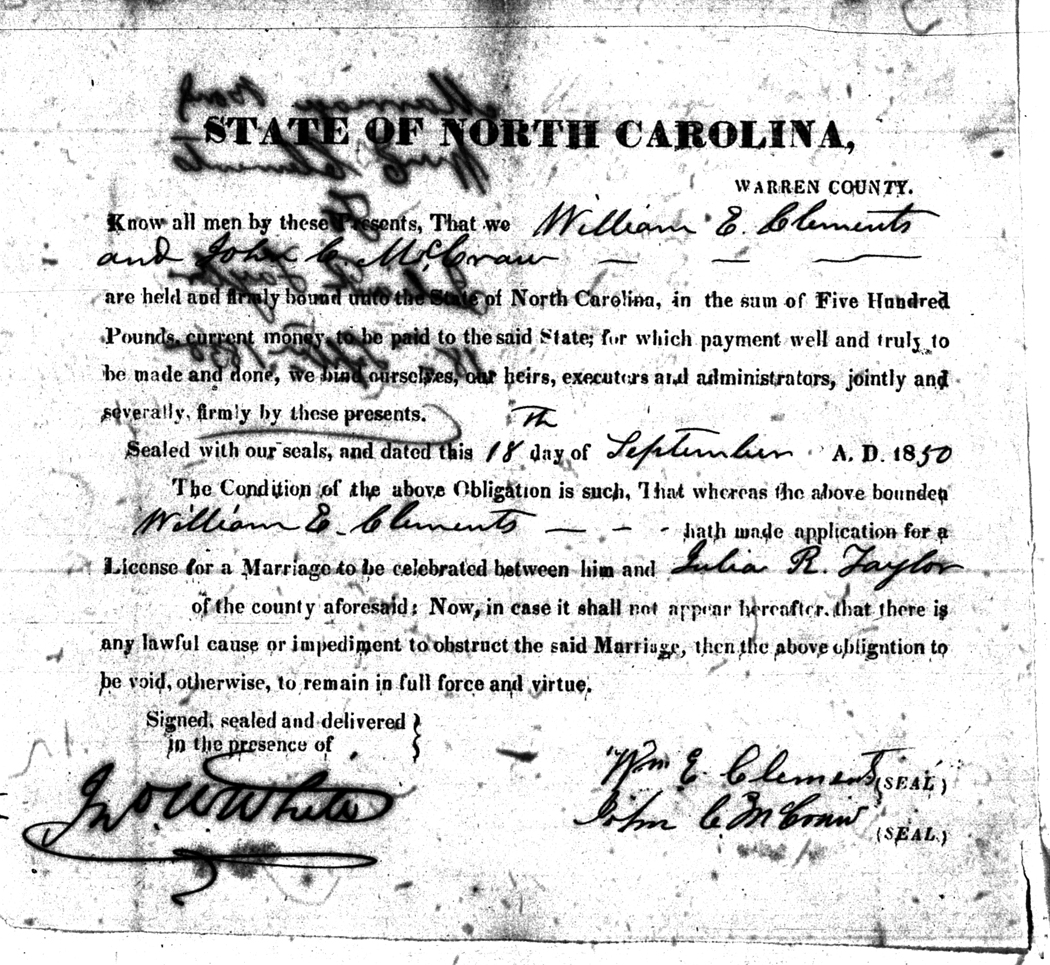 STATE OF NORTH CAROLINA,
WARREN COUNTY.
Know all men by these Presents, That we William E. Clements
and John C. McCraw — — —
are held and firmly bound unto the State of North Carolina, in the sum of Five Hundred
Pounds, current money, to be paid to the said State; for which payment well and truly to
be made and done, we bind ourselves, our heirs, executors and administrators, jointly and
severally, firmly by these presents.
Sealed with our seals, and dated this 18th day of September A. D. 1850
The Condition of the above Obligation is such, That whereas the above bounden
William E. Clements — - - hath made application for a
License for a Marriage to be celebrated between him and Julia R. Taylor
of the county aforesaid: Now, in case it shall not appear hereafter, that there is
any lawful cause or impediment to obstruct the said Marriage, then the above obligation to
be void, otherwise, to remain in full force and virtue.
Signed, sealed and delivered }
in the presence of
Wm E. Clements (SEAL)
Jno W White
John C. McCraw (SEAL)